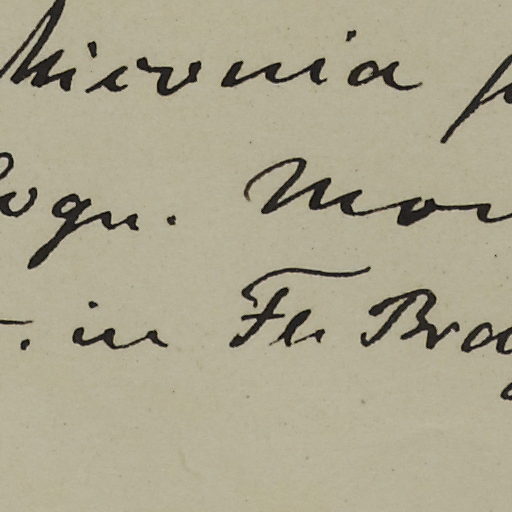 Miconia
Cogn. Mon
. in Fl. Bra